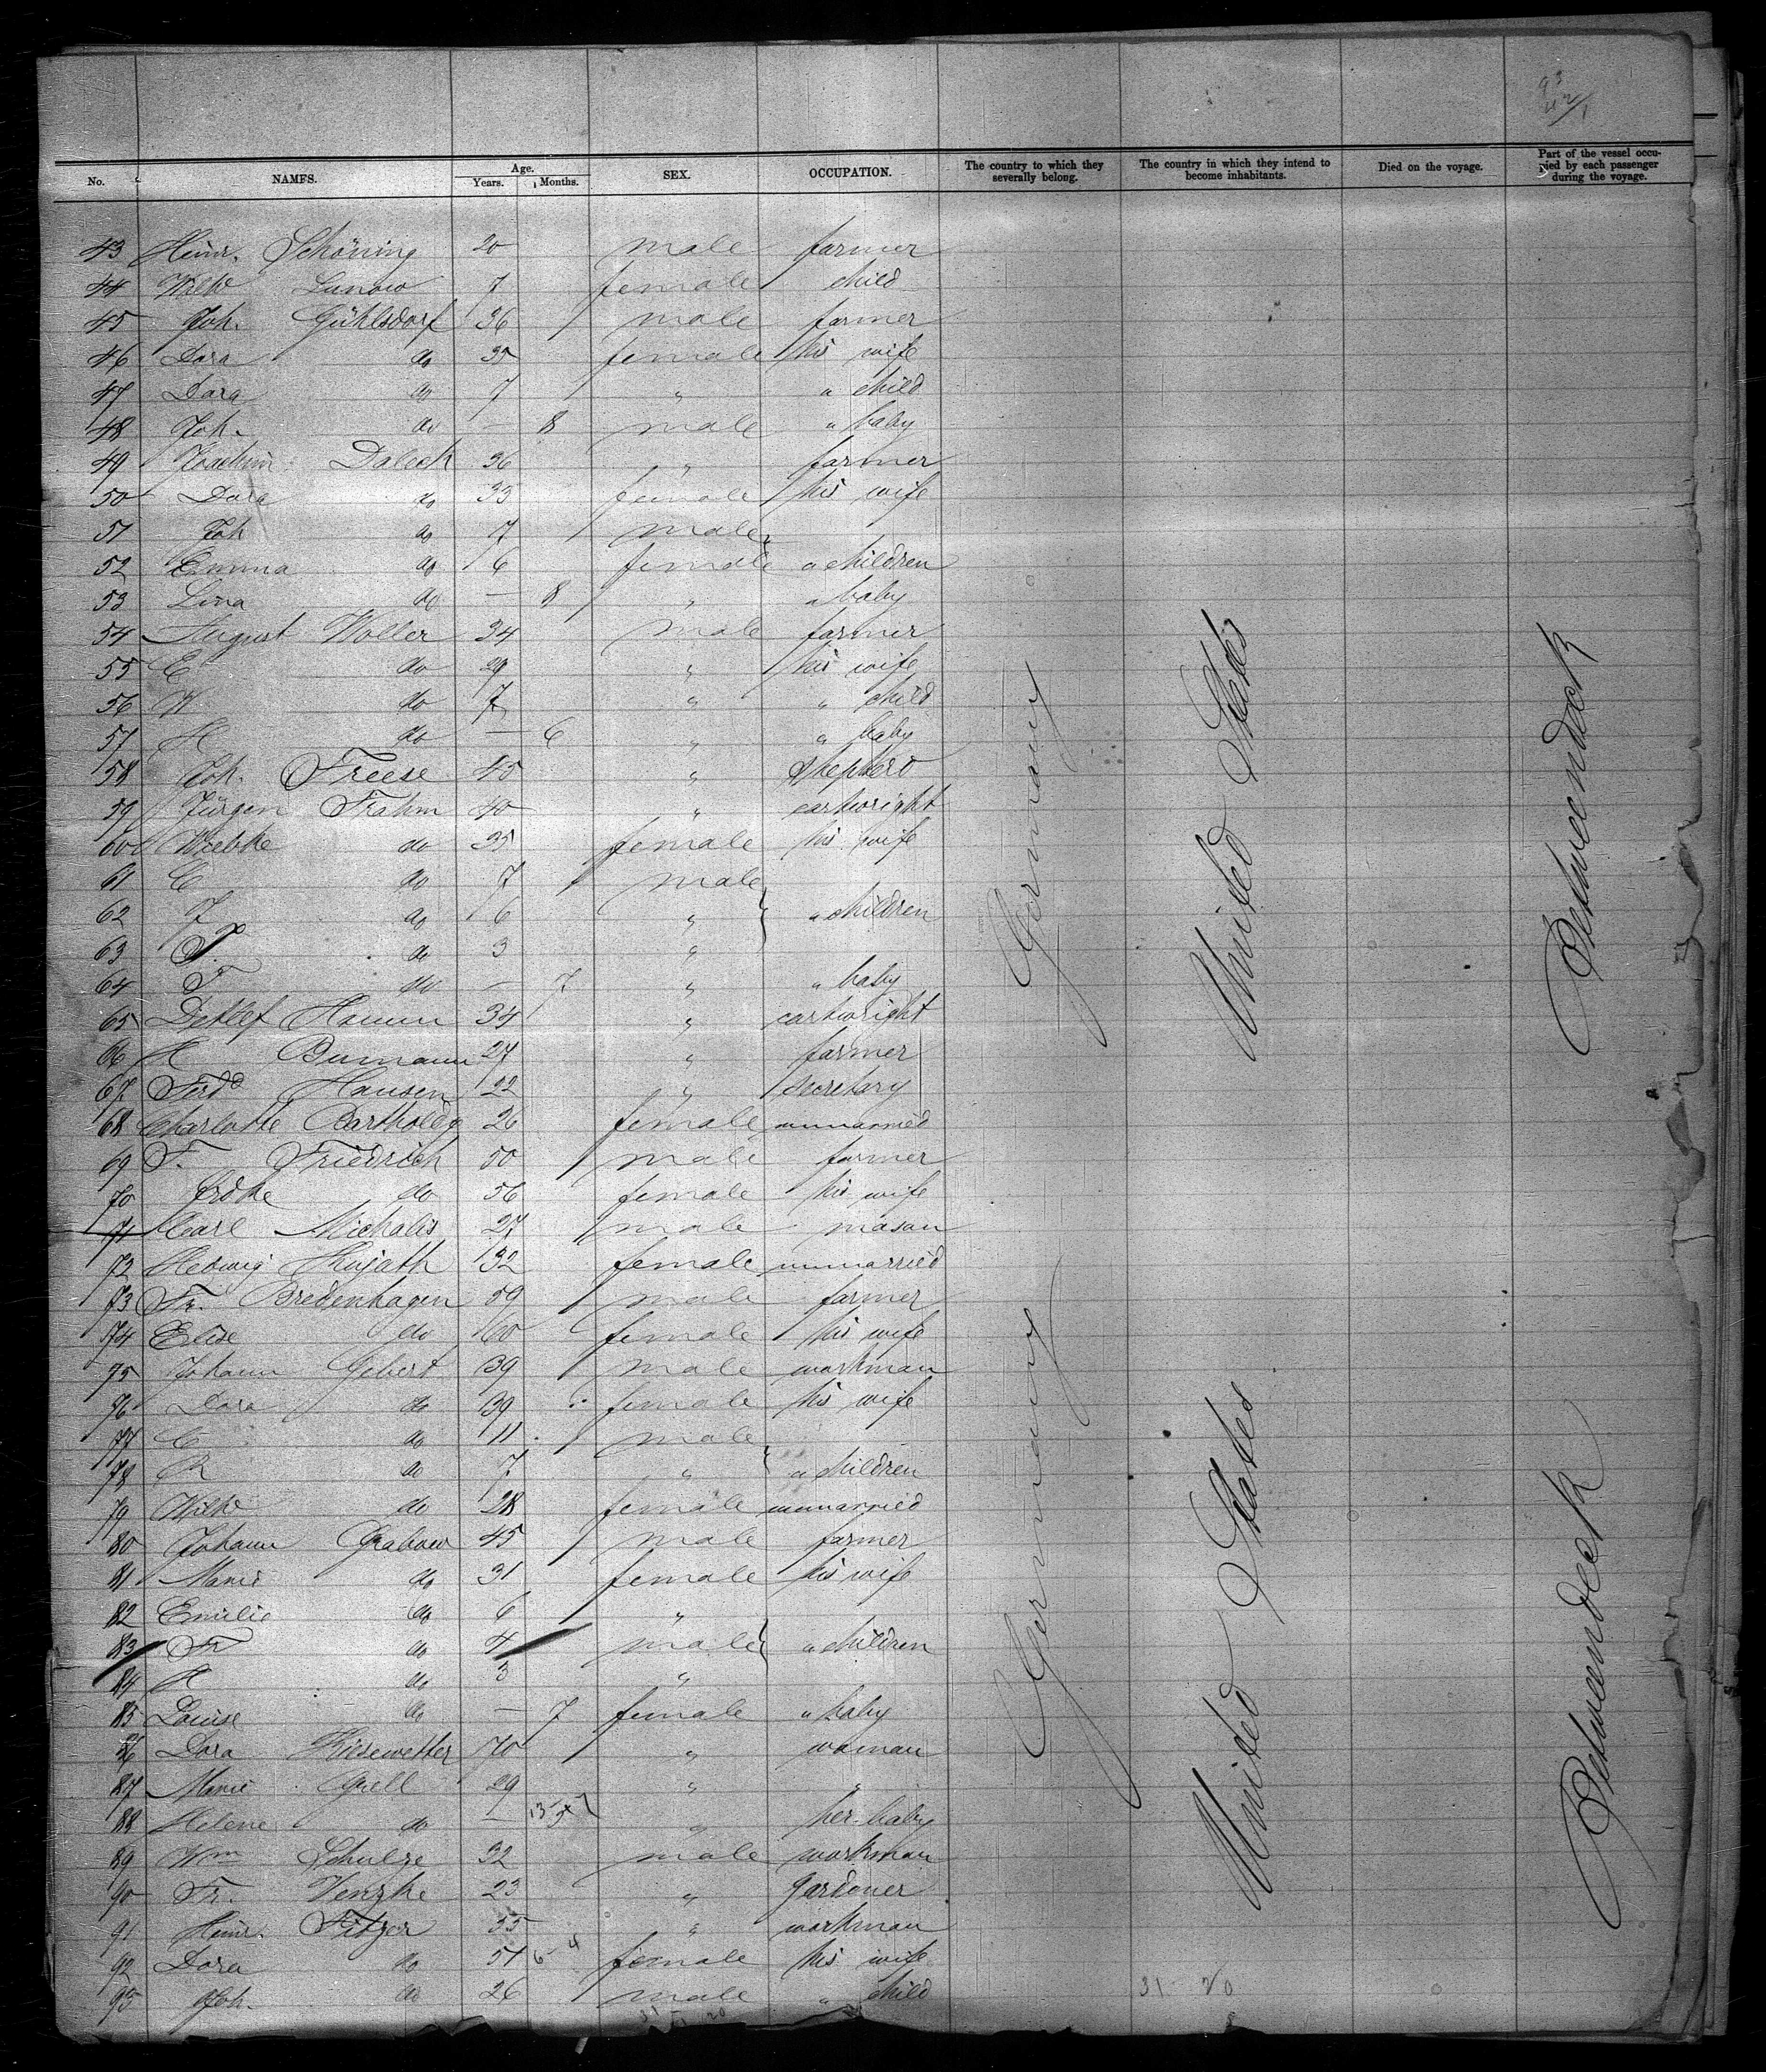 93
No. NAMES. Age. Years. Months. SEX. OCCUPATION. The country to which they severally belong. The country in which they intend to become inhabitants. Died on the voyage. Part of the vessel occupied by each passenger during the voyage.
43 Heinr. Schöning 20 male farmer
44 Wilhe Lunow 7 female child
45 Joh. Gühlsdorf 36 male farmer
46 Dora do 35 female his wife
47 Dora do 7 " " child
48 Joh. do — 8 male " baby
49 Joachim Dalech 36 " farmer
50 Dora do 35 female his wife
51 Joh do 7 male "
52 Emma do 6 female " children
53 Lina do — 8 " " baby
54 August Woller 34 male farmer
55 E do 29 " his wife
56 W do 7 " " child
57 H do — 6 " " baby
58 Joh. Freese 45 " Shepherd
59 Jürgen Frahm 40 " cartwright
60 Wiebke do 35 female his wife
61 C do 7 male
62 J do 6 " " children
63 do 3 "
64 F do — 7 " " baby
65 Detlef Hamm 34 " cartwright
66 H Bumann 27 " farmer
67 Ferd Hansen 22 " secretary
68 Charlotte Bartholdy 26 female unmarried
69 F. Friedrich 50 male farmer
70 do 56 female his wife
71 Carl Michalis 27 male mason
72 Hedwig Kujath 32 female unmarried
73 Fr. Bredenhagen 59 male farmer
74 Elise do 60 female his wife
75 Johann Gebert 39 male workman
76 Dora do 39 female his wife
77 C do 11 male
78 R do 7 " " children
79 Wilhe do 28 female unmarried
80 Johann Grabow 45 male farmer
81 Marie do 31 female his wife
82 Emilie do 6 "
83 Fr do 4 male " children
84 H do 3 "
85 Louise do — 7 female " baby
86 Dora Kiesewetter 70 " woman
87 Marie Grell 29 " "
88 Helene do — " her baby
89 Wm Schulze 32 male workman
90 Fr. Venzke 23 " gardener
91 Heinr. Fitzer 55 " workman
92 Dora do 51 6 - 4 female his wife
93 Joh. do 26 male " child
Germany
United States
Betweendeck
Germany
United States
Betweendeck
31 - 20